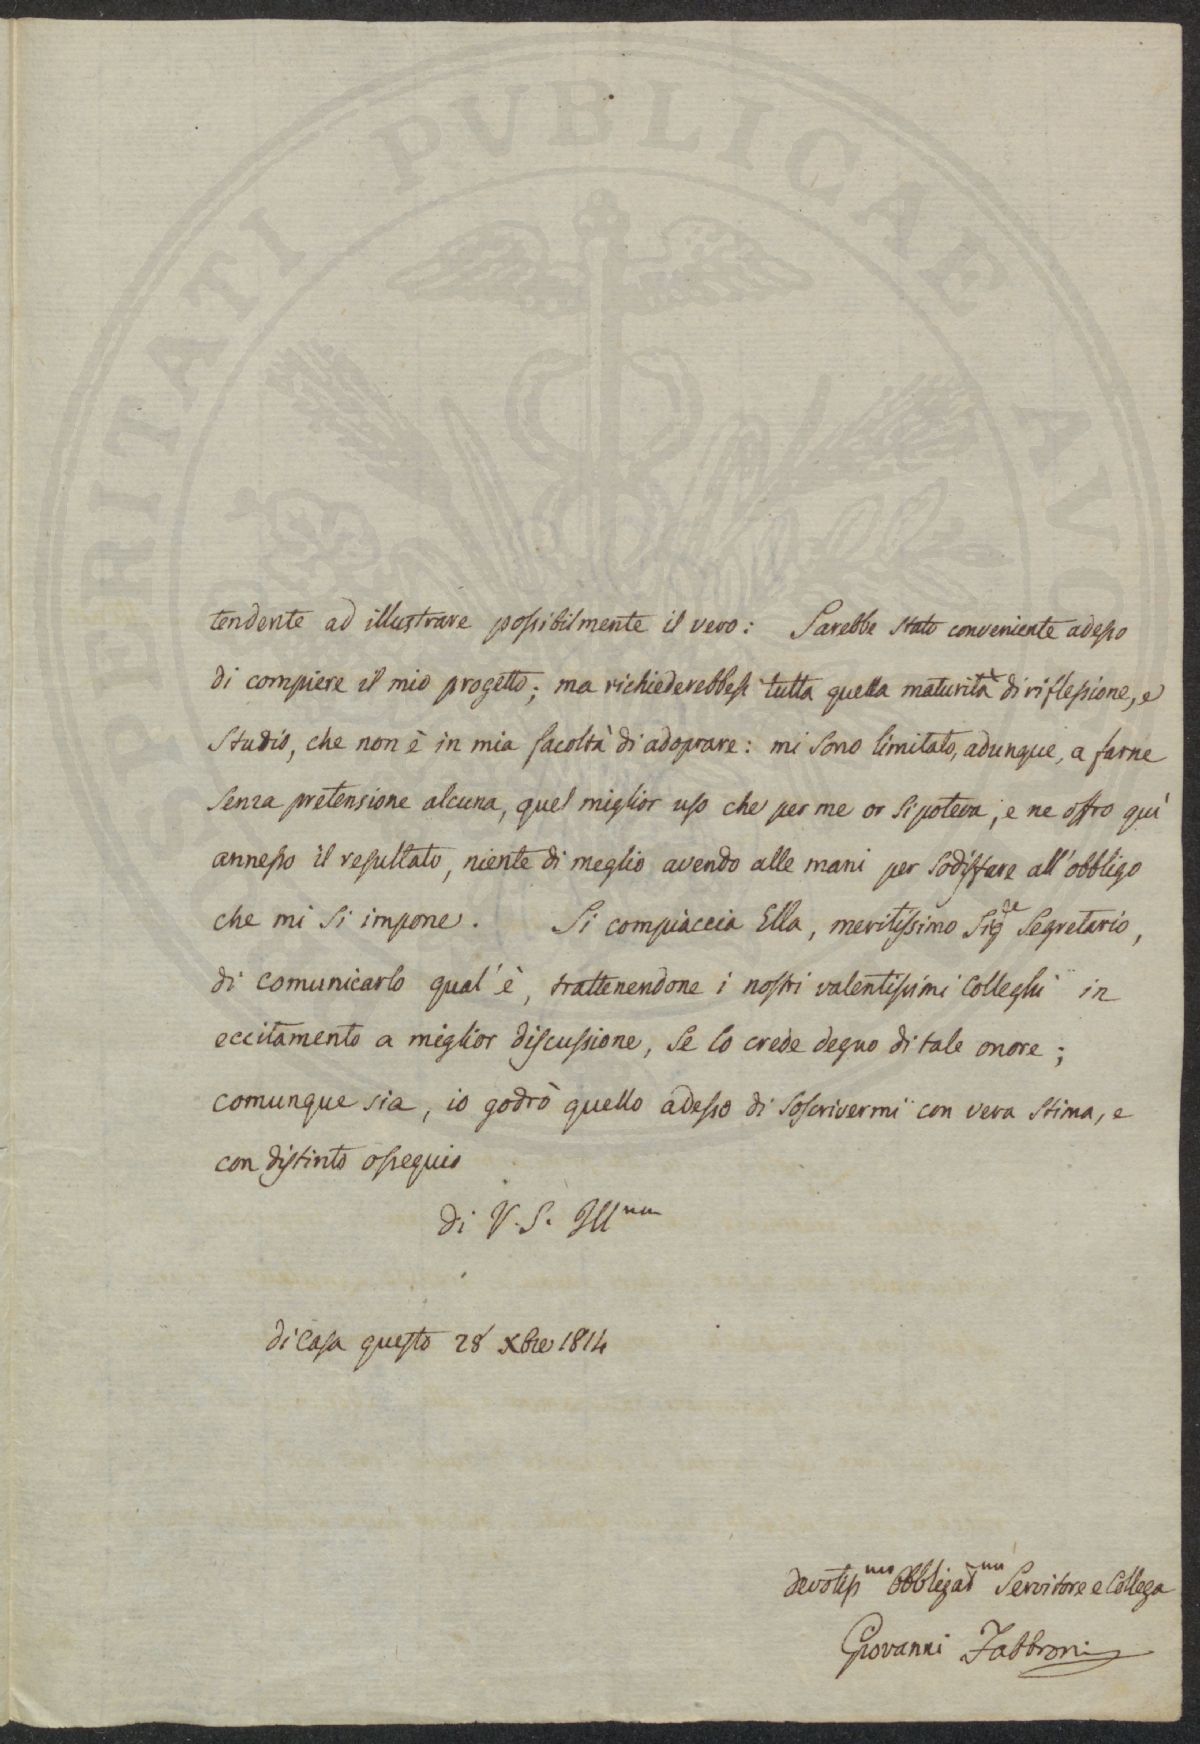 PROSPERITATI PUBLICAE AUGENDAE
tendente ad illustrare possibilmente il vero: Sarebbe stato conveniente adesso
di compiere il mio progetto; ma richiederebbesi tutta quella maturità di riflessione, e
studio, che non è in mia facoltà di adoprare: mi sono limitato, adunque, a farne
senza pretensione alcuna, quel miglior uso che per me or si poteva, e ne offro quì
annesso il resultato, niente di meglio avendo alle mani per sodisfare all'obbligo
che mi si impone. Si compiaccia Ella, meritissimo Sigre Segretario,
di comunicarlo qual'è, trattenendone i nostri valentissimi Colleghi in
eccitamento a miglior discussione, se lo crede degno di tale onore;
comunque sia, io godrò quello adesso di soscrivermi con vera stima, e
con distinto ossequio
di V. S. Illma
di Casa questo 28 Xbre 1814
devotissmo obbligatmo Servitore e Collega
Giovanni Fabbroni